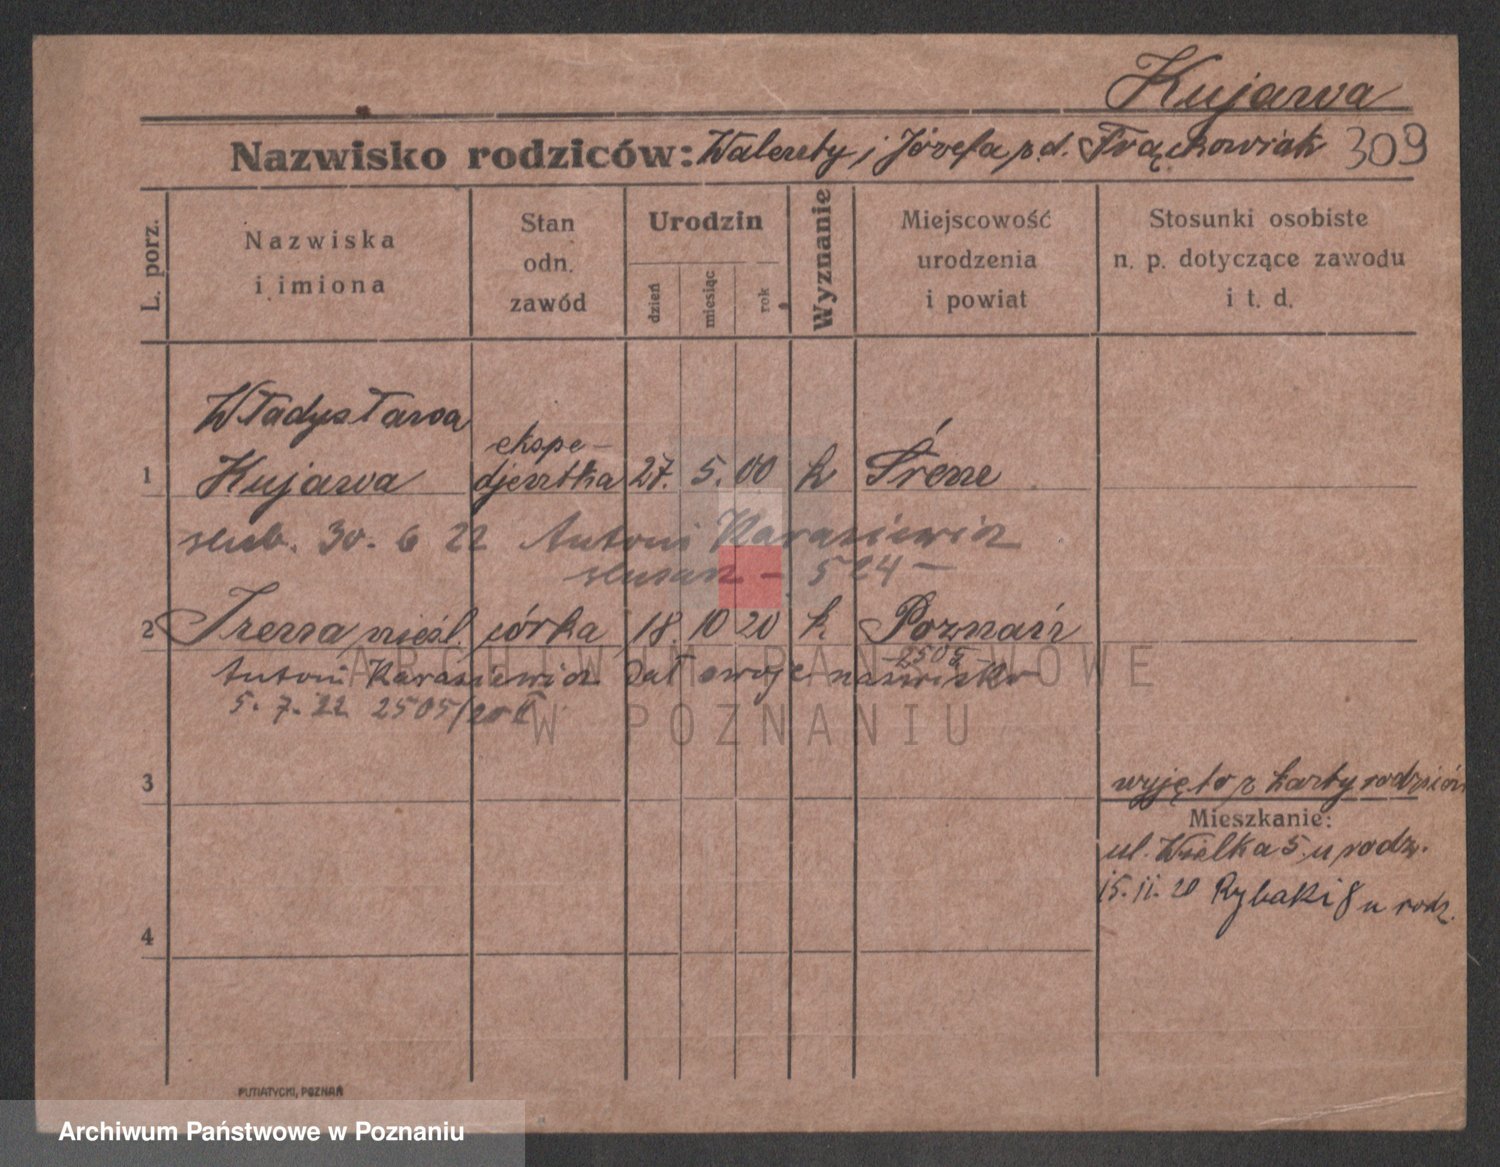 Kujawa
Nazwisko rodziców: Walenty i Józefa p. d. Frąckowiak 309
L. porz.
Nazwiska
i imiona
Stan
odn.
zawód
Urodzin
dzień
miesiąc
rok
Wyznanie
Miejscowość
urodzenia
i powiat
Stosunki osobiste
n. p. dotyczące zawodu
i t. d.
Władysława
1 Kujawa ekspe-djentka 27. 5. 00 k Śrem
slub. 30. 6 22 Antoni Karasiewicz
slusarz - 524 -
2 Irena nieśl. córka 18. 10 20 k. Poznań
2505
Antoni Karasiewicz dał swoje nazwisko
5. 7. 22 2505/20
3
wyjęto z karty rodziców
Mieszkanie:
ul. Wielka 5. u rodz.
15. 11. 20 Rybaki 8 u rodz.
4
PUTIATYCKI, POZNAŃ
ARCHIWUM PAŃSTWOWE
W POZNANIU
Archiwum Państwowe w Poznaniu